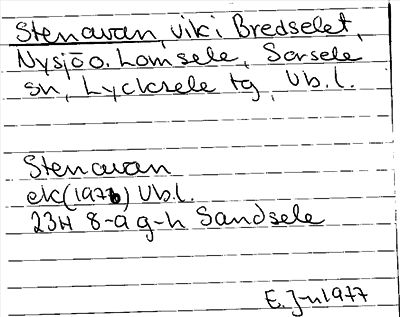 Stenavan, vik i Bredselet,
Nysjö o. Lomsele, Sorsele
sn, Lycksele tg, Vb.l.
Stenavan
ek (1976) Vb.l.
23H 8-9 g-h Sandsele
E. J-n 1977